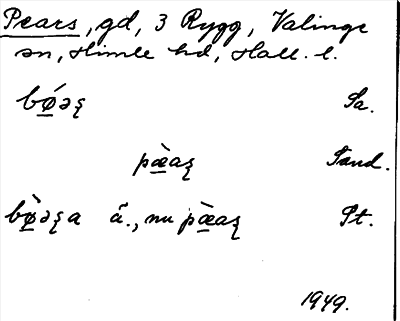 Pears, gd, 3 Rygg, Valinge
sn, Himle hd, Hall. l.
bǿ̲əʂ Sa.
pæ̲̀aʂ Sand.
bø̲̀əʂa ä., nu pæ̲̀aʂ St.
1949.